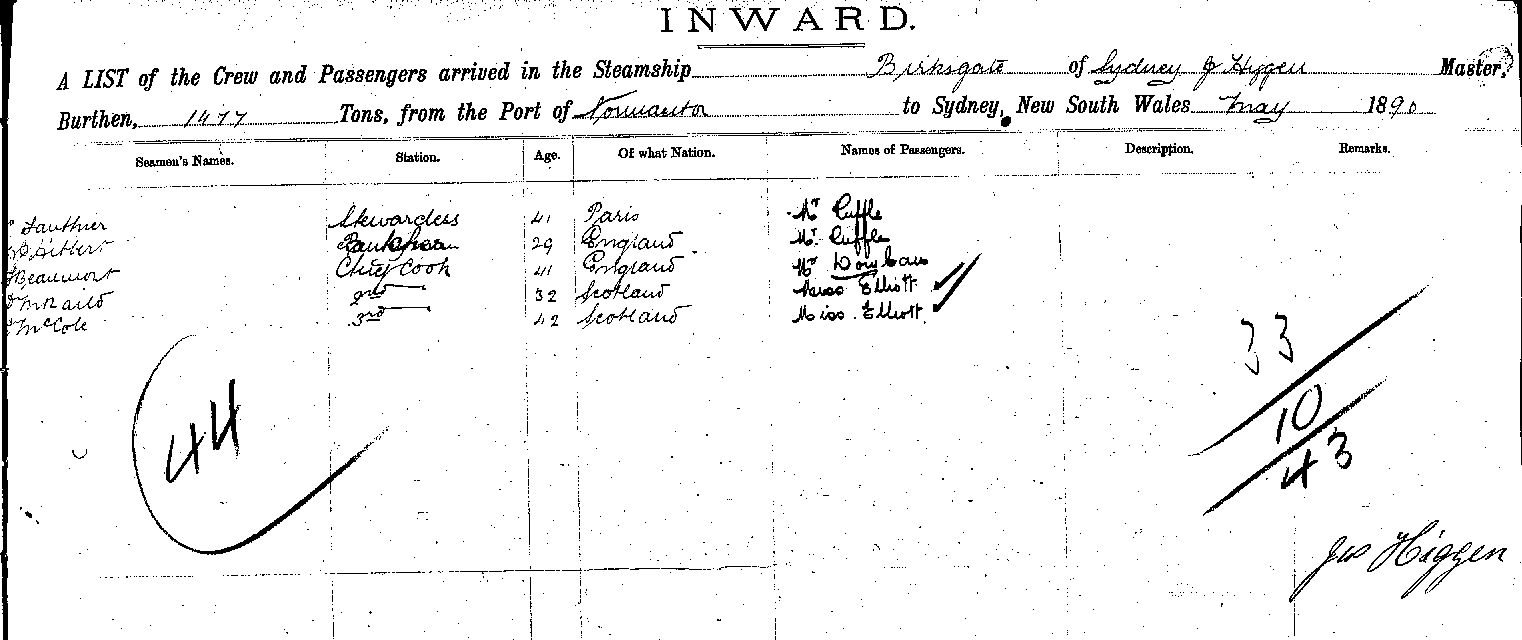 INWARD.
A LIST of the Crew and Passengers arrived in the Steamship Birksgate of Sydney J Higgen Master,
Burthen, 1477 Tons, from the Port of Normanton to Sydney, New South Wales May 1890
Seamen's Names. Station. Age. Of what Nation. Names of Passengers. Description. Remarks.
Gauthier Stewardess 41 Paris Mr Cuffle
29 England Mr. Cuffle
Beaumont Chief Cook 41 England Mr
2nd 32 Scotland Miss Elliott
McCole 3rd 42 Scotland Miss. Elliott.
33
44
10
43
Jas Higgen